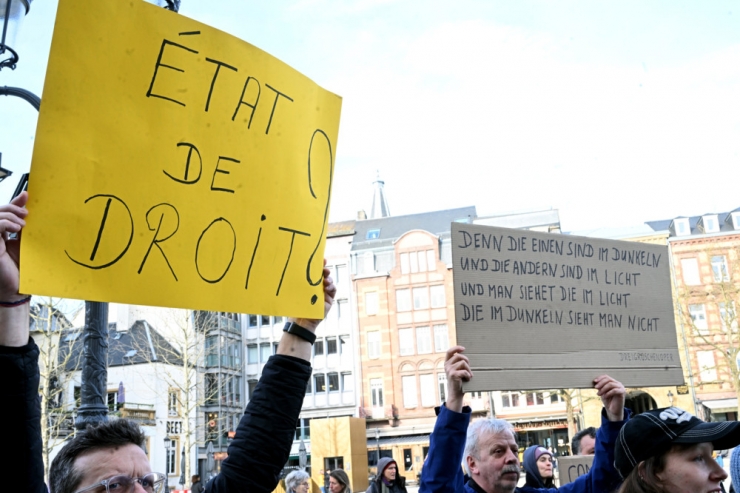 ÉTAT
DE
DROIT ?
DENN DIE EINEN SIND IM DUNKELN
UND DIE ANDERN SIND IM LICHT
UND MAN SIEHET DIE IM LICHT
DIE IM DUNKELN SIEHT MAN NICHT
DREIGROSCHENOPER